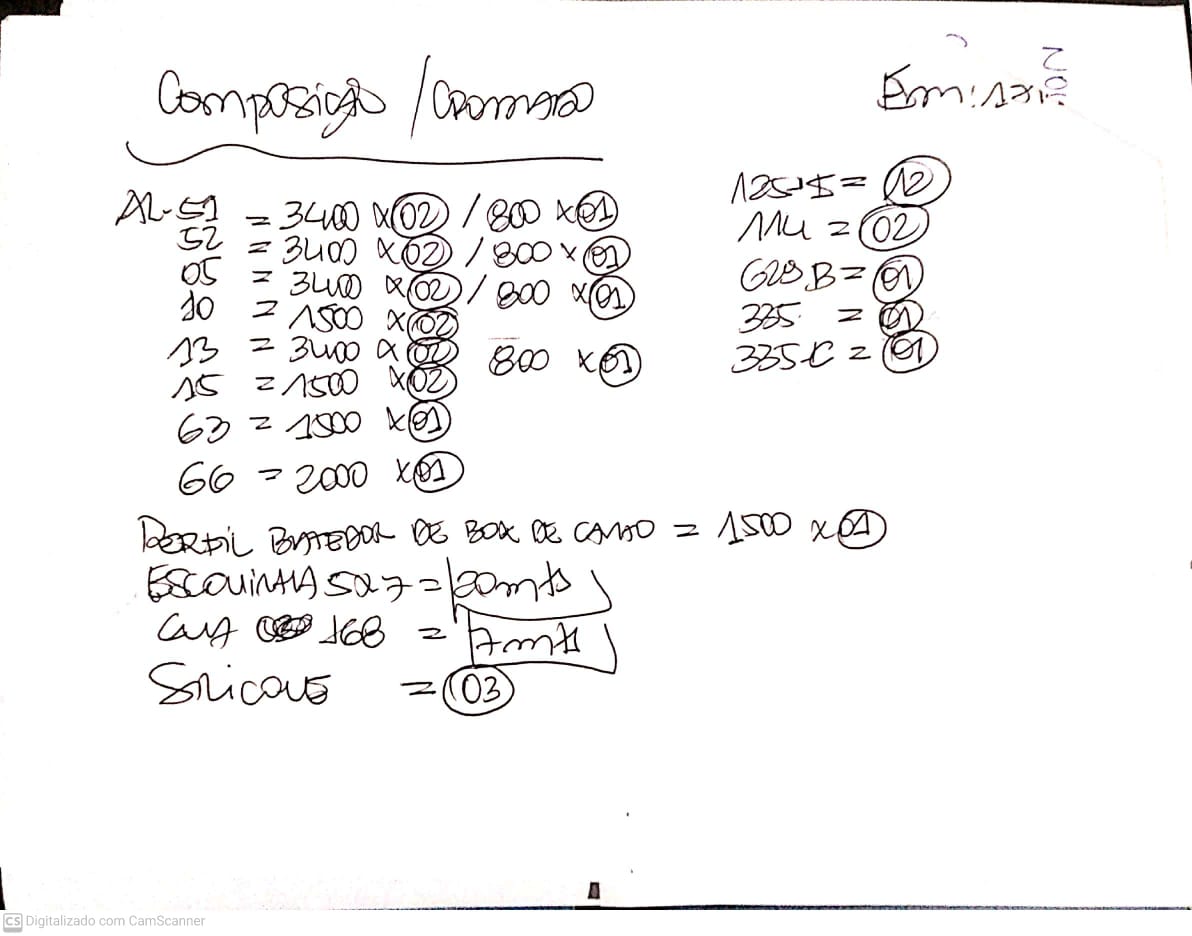 Composição / Cromado
AL-51 = 3400 x 02 / 800 x 01
52 = 3400 x 02 / 800 x 01
05 = 3400 x 02 / 800 x 01
10 = 1500 x 02
13 = 3400 x 02 800 x 01
15 = 1500 x 02
63 = 1500 x 01
66 = 2000 x 01
Em:
= 12
114 = 02
628 B = 01
335 = 01
335-C = 01
PERFIL BATEDOR DE BOX DE CANTO = 1500 x 01
ESCOVINHA 5x7 = 20mts
168 = 7mts
SILICONE = 03
CS Digitalizado com CamScanner